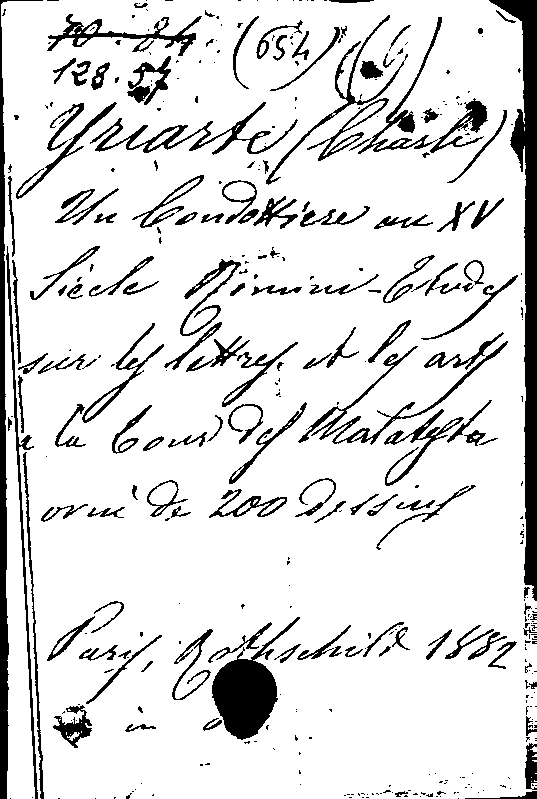 70.84 (654) (G)
128.57
Yriarte (Charle)
Un Condottiere au XV
Siècle Rimini - Etudes
sur les lettres et les arts
a la Cour des Malatesta
orné de 200 dessins
Paris, Rothschild 1882
in